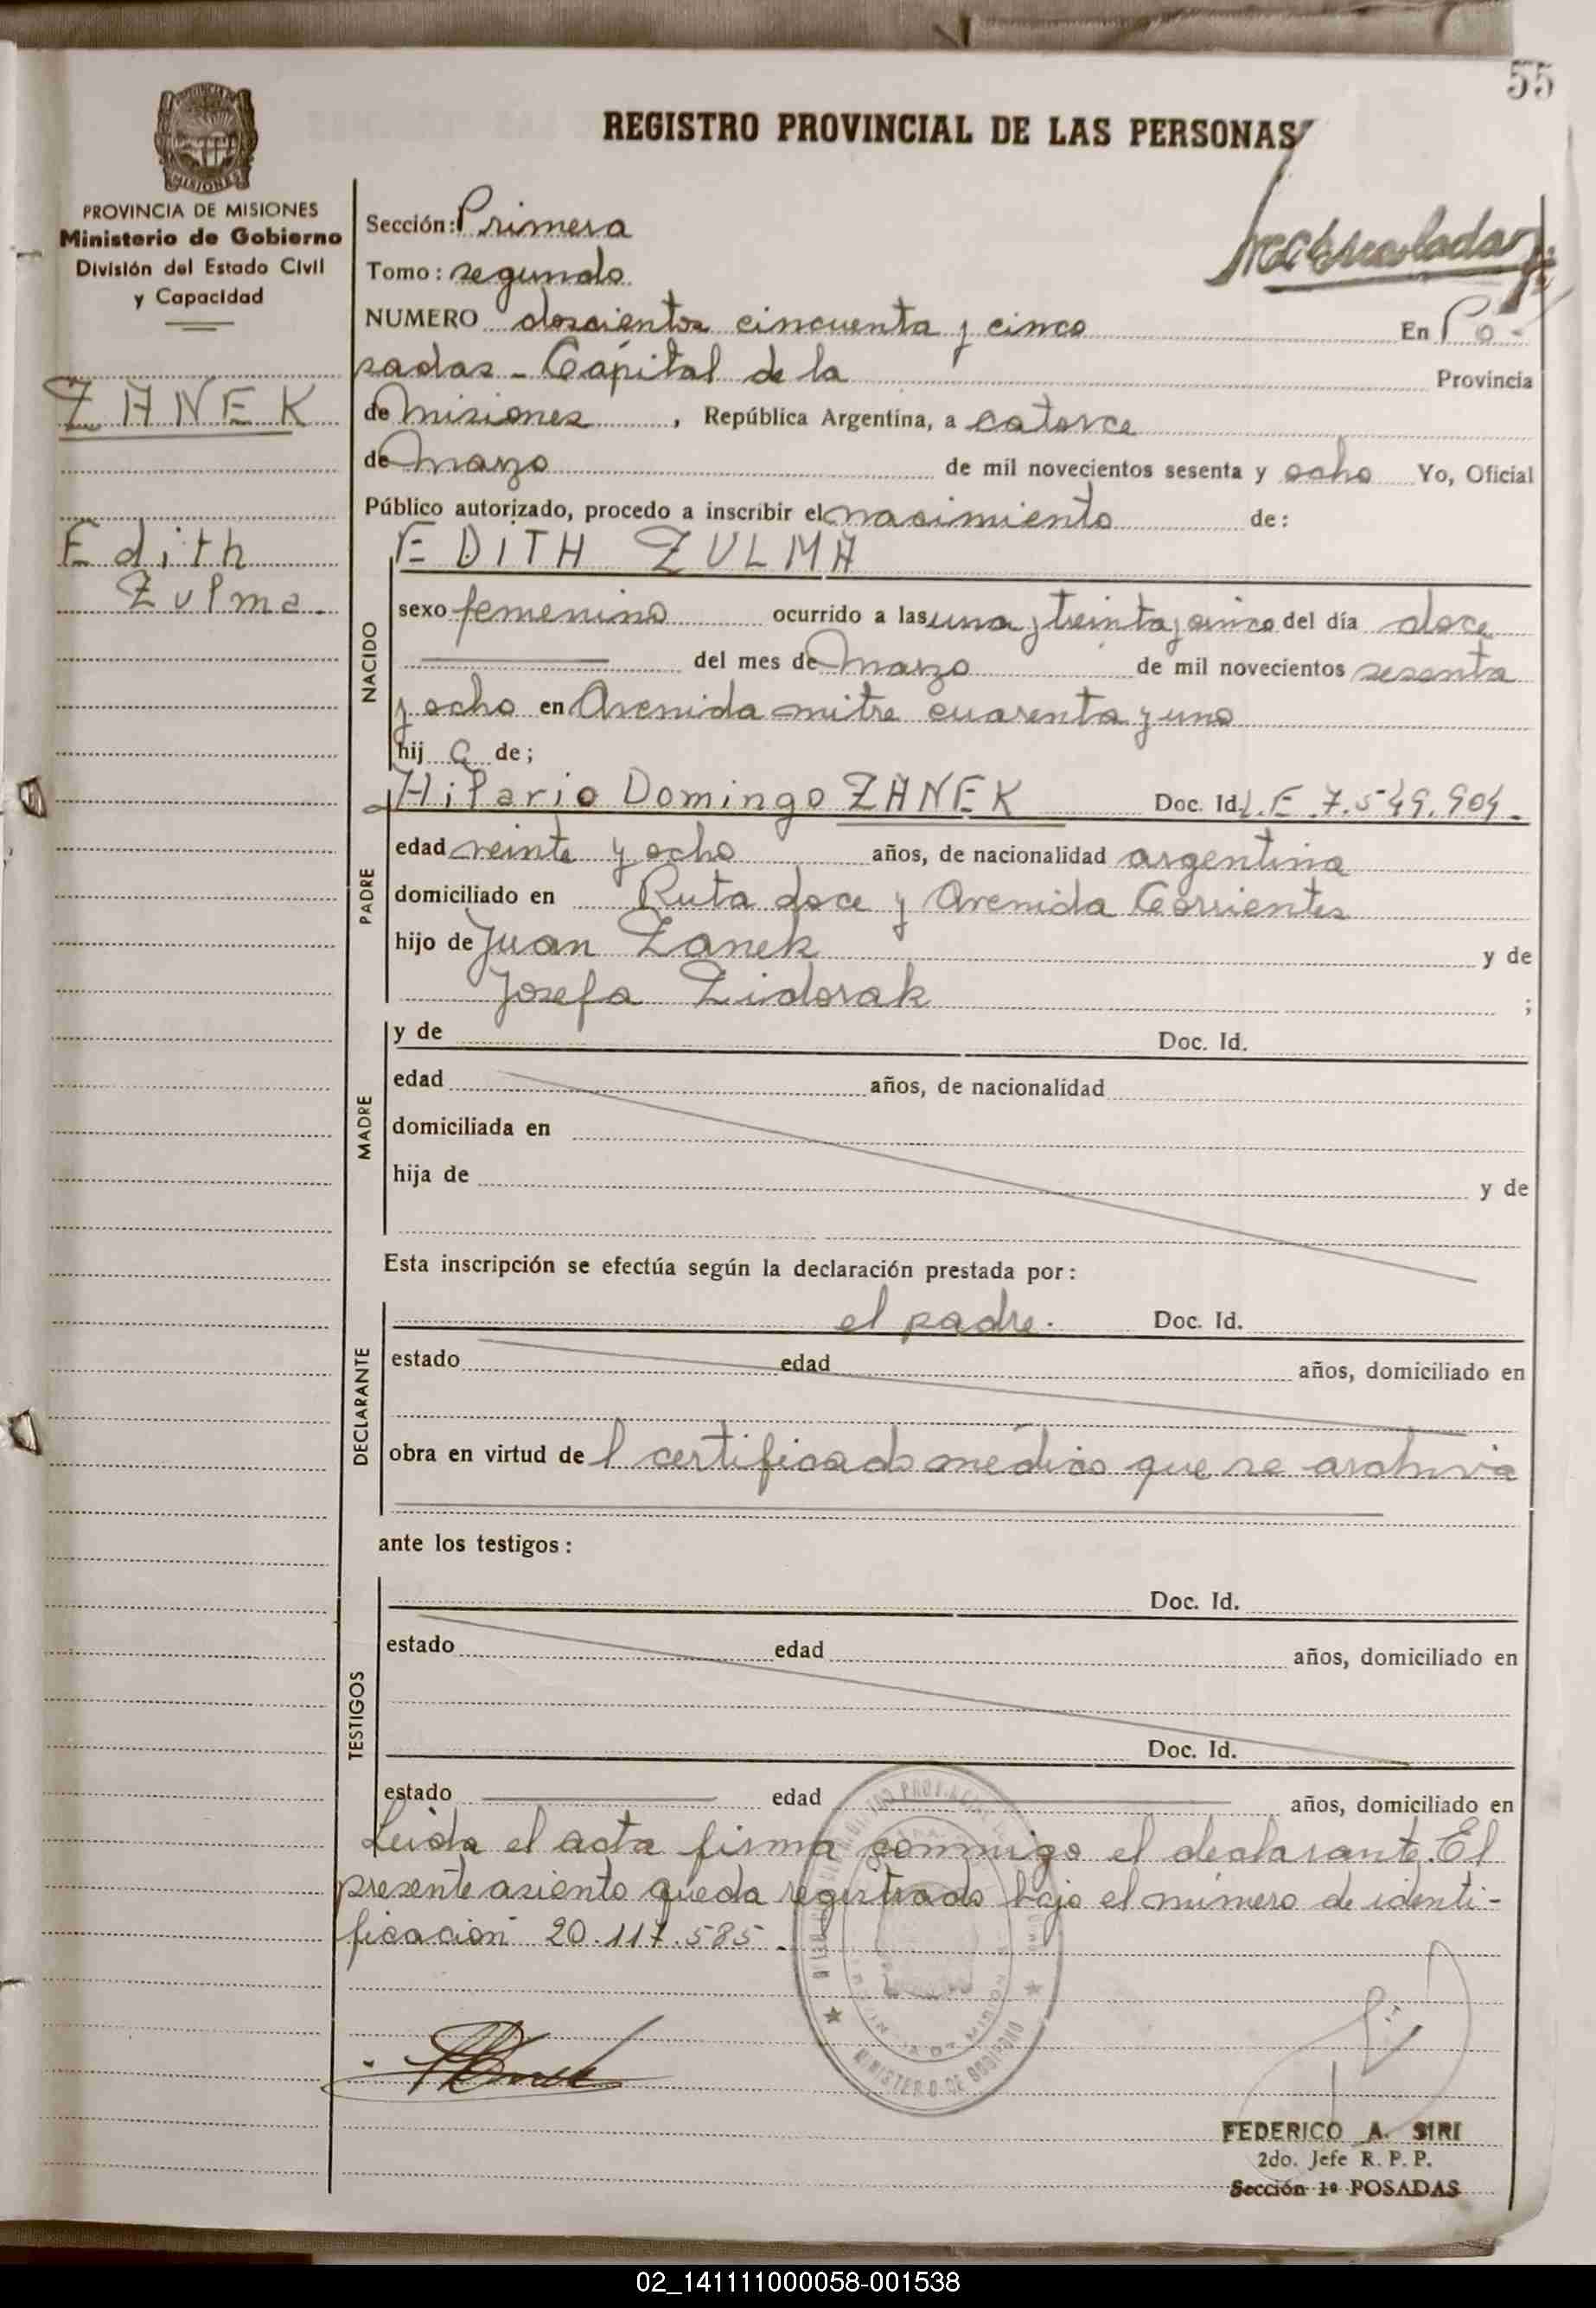 55
REGISTRO PROVINCIAL DE LAS PERSONAS
PROVINCIA DE MISIONES
Ministerio de Gobierno
División del Estado Civil
y Capacidad
ZANEK
Edith
Zulma.
Sección: Primera
Tomo: segundo
NUMERO doscientos cincuenta y cinco En Po-
sadas - Capital de la Provincia
de Misiones, República Argentina, a catorce
de Marzo de mil novecientos sesenta y ocho Yo, Oficial
Público autorizado, procedo a inscribir el nacimiento de:
EDITH ZULMA
NACIDO
sexo femenino ocurrido a las una y treinta y cinco del día doce
del mes de Marzo de mil novecientos sesenta
y ocho en Avenida mitre cuarenta y uno
hij a de;
Hilario Domingo ZANEK Doc. Id. L.E 7.549.904.
PADRE
edad veinte y ocho años, de nacionalidad argentina
domiciliado en Ruta doce y Avenida Corrientes
hijo de Juan Zanek y de
Josefa Zidorak ;
MADRE
y de Doc. Id.
edad años, de nacionalidad
domiciliada en
hija de y de
Esta inscripción se efectúa según la declaración prestada por:
DECLARANTE
el padre. Doc. Id.
estado edad años, domiciliado en
obra en virtud de l certificado médico que se archiva
ante los testigos:
TESTIGOS
Doc. Id.
estado edad años, domiciliado en
Doc. Id.
estado edad años, domiciliado en
Leida el acta firma conmigo el declarante. El
presente asiento queda registrado bajo el número de identi-
ficación 20.117.585.
MINISTERIO DE GOBIERNO
FEDERICO A. SIRI
2do. Jefe R. P. P.
Sección 1ª POSADAS
02_141111000058-001538